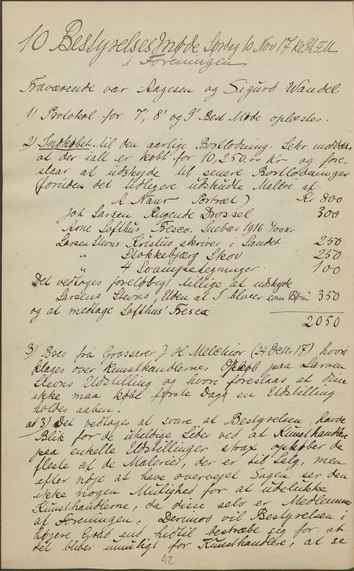 10 Bestyrelsesmøde Lørdag 10 Nov 17
i Foreningen
Fraværende var Aagesen og Sigurd Wandel
1) Protokol for 7, 8 og 9 Best Møde oplæstes.
2) Indkøbene til den aarlige Bortlodning. Sekr meddelte
at der ialt er købt for 10,250 Kr og fore
slaar at udskyde til senere Bortlodninger
foruden det tidligere udskudte Maleri af
A Naur Portræt) Kr 800
Joh Larsen Rugende Brossel 300
Arne Lofthus, Fresco.
Larsen Stevns Kristus skriver i Sandet 250
" Blokkebjerg Skov 250
" 4 Evangelietegninger 100
Det vedtoges foreløbig tillige at udskyde
Larsens Stevns, Uden at I bliver som Børn 350
og at medtage Lofthus' Fresco
2050
3) Brev fra Grosserer J H Melchior hvori
klages over Kunsthandlernes Opkøb paa Larsen
Stevns Udstilling og hvori foreslaas at disse
ikke maa købe første Dag en Udstilling
holdes aaben.
ad 3) Det vedtoges at svare at Bestyrelsen havde
Blik for de uheldige Sider ved at Kunsthandlere
paa enkelte Udstillinger straks opkøber de
fleste af de Malerier, der er til Salg, men
efter nøje at have overvejet Sagen ser den
ikke nogen Mulighed for at udelukke
Kunsthandlerne, da disse selv er Medlemmer
af Foreningen. Derimod vil Bestyrelsen i
højere Grad end hidtil bestræbe sig for at
det bliver umuligt for Kunsthandlere, at se